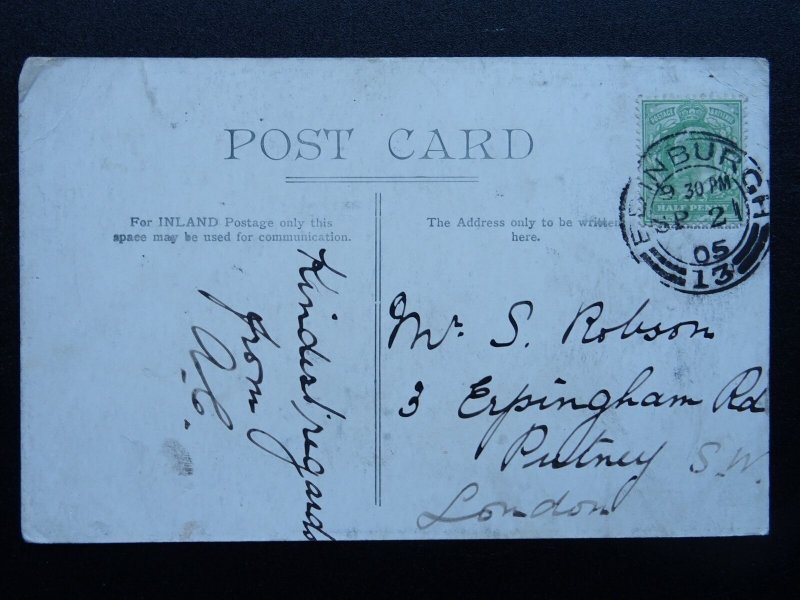 POST CARD
For INLAND Postage only this
space may be used for communication.
The Address only to be written
here.
POSTAGE
HALF PENNY
EDINBURGH
9 30 PM
SP 21
05
13
Kindest regards
from
A.C.
Mr S. Robson
3 Erpingham Rd
Putney S.W.
London